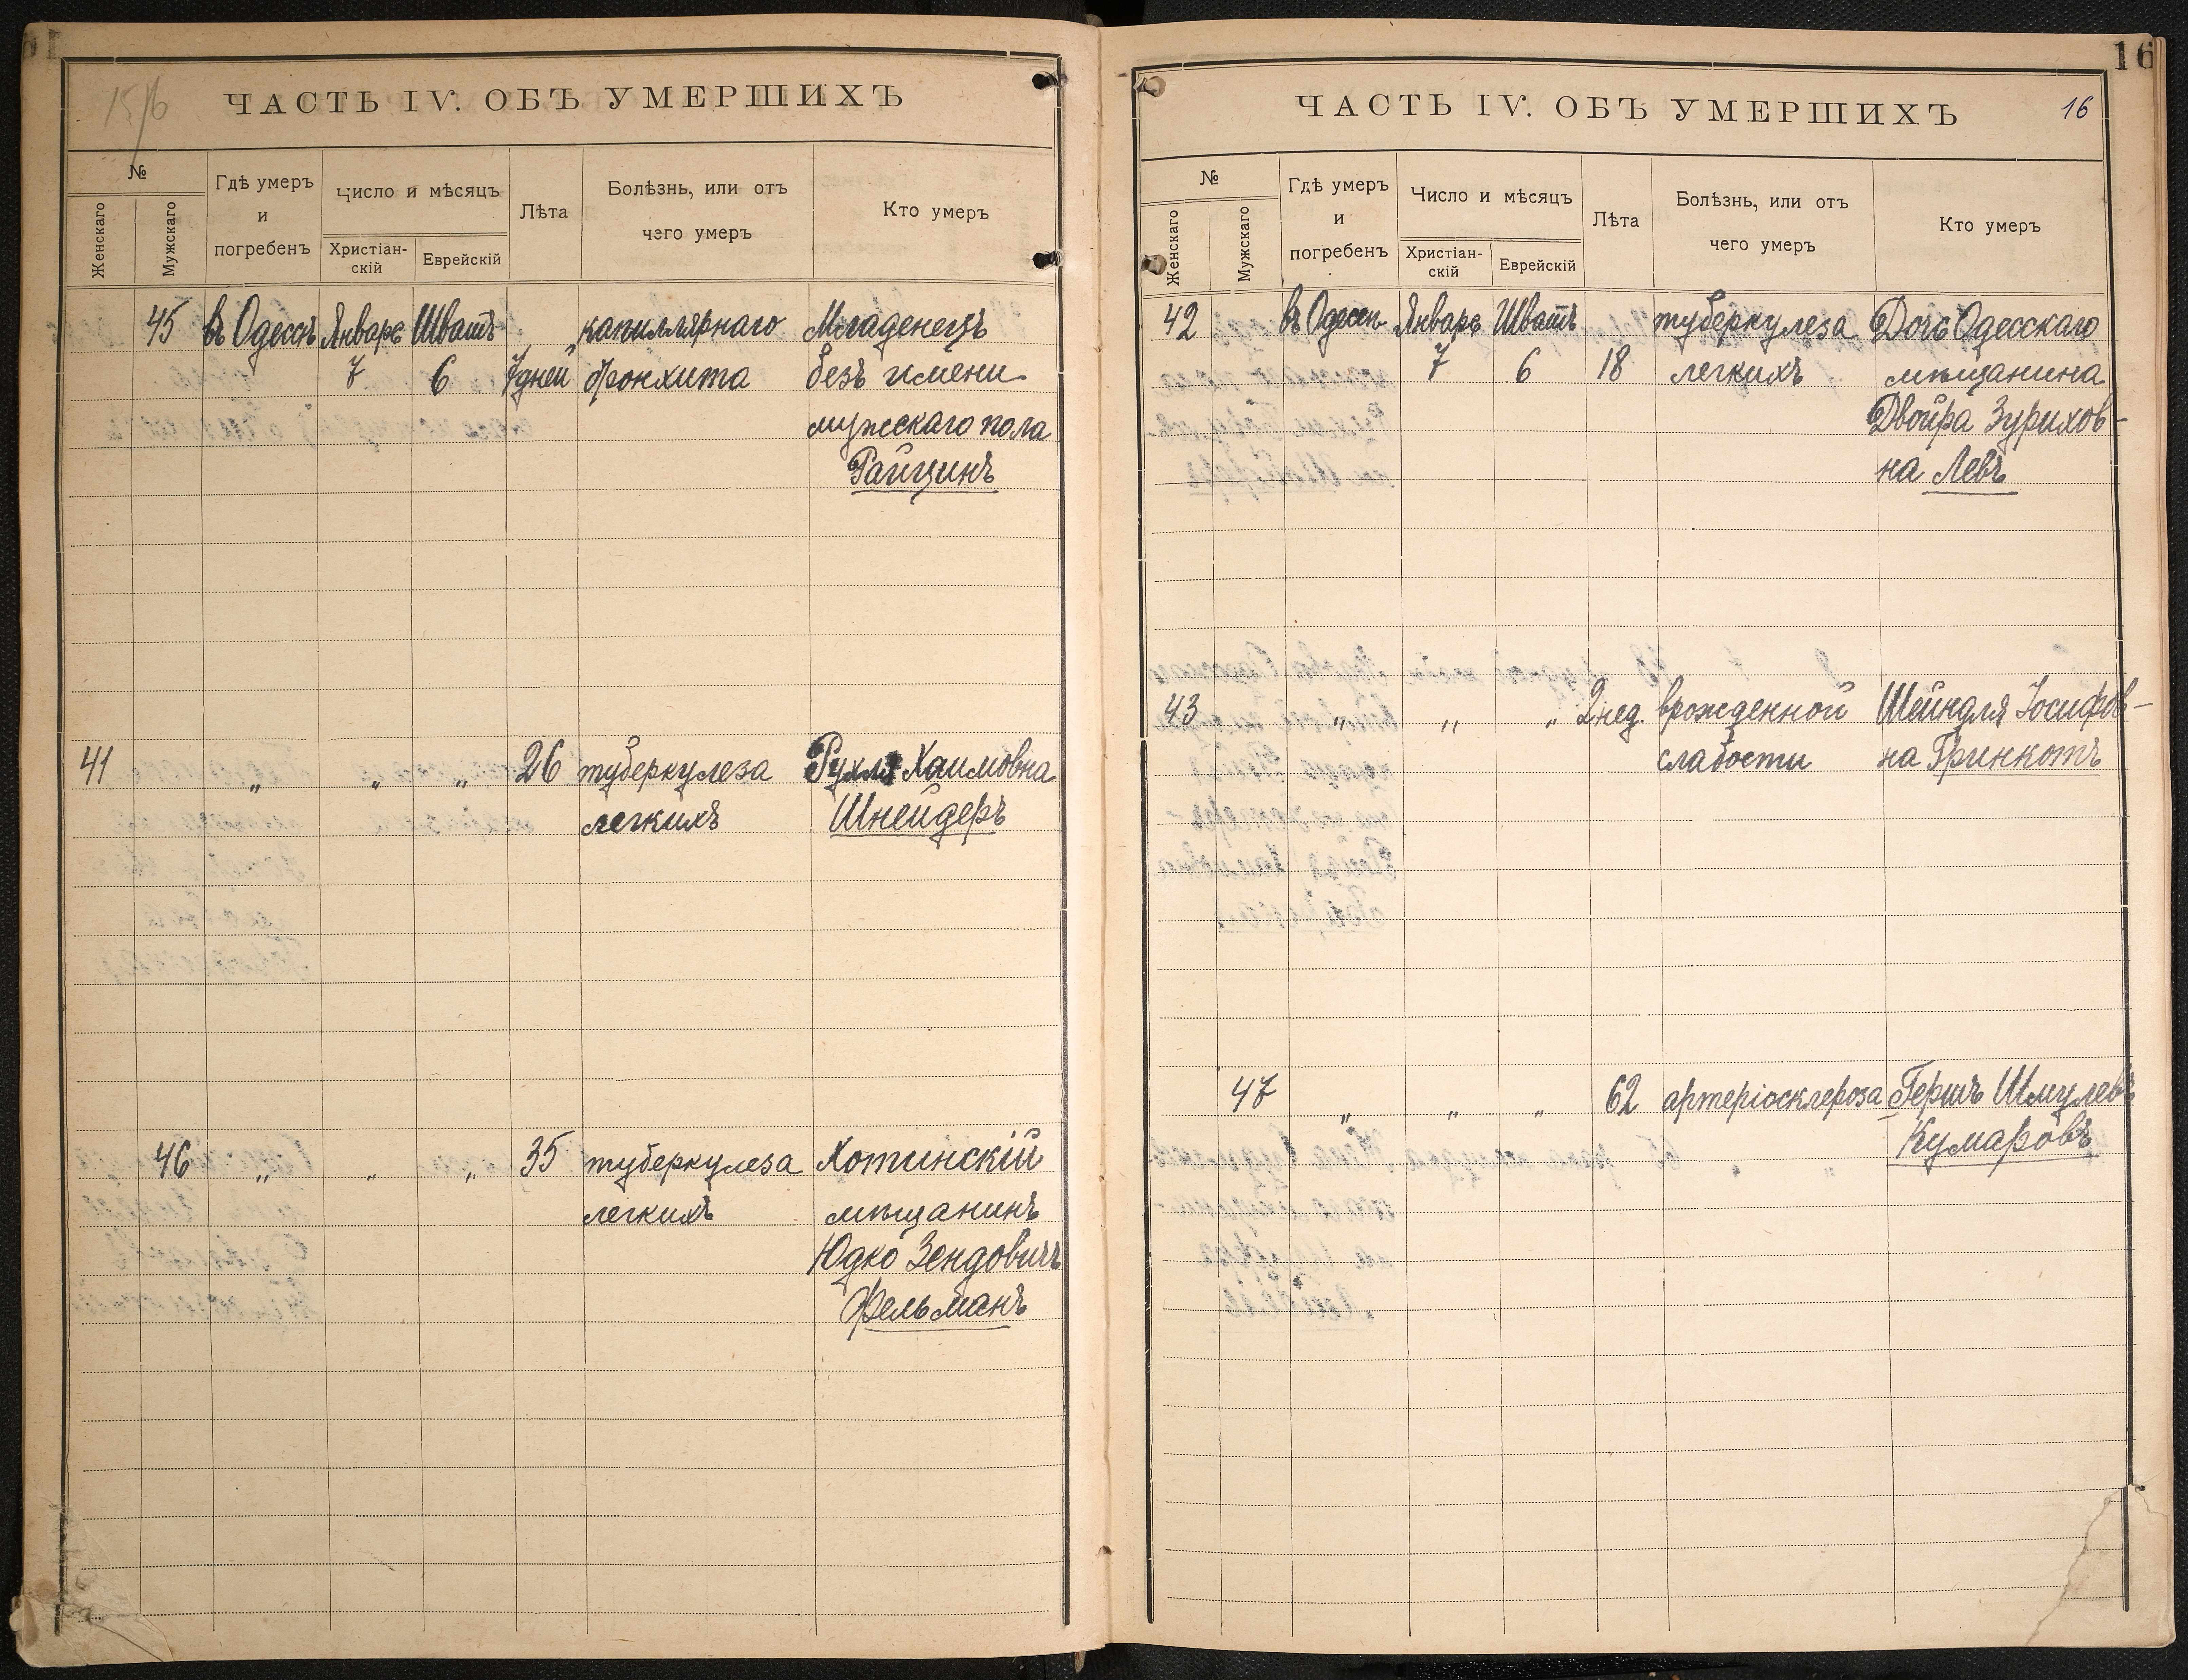 15/16
ЧАСТЬ IV. ОБЪ УМЕРШИХЪ
№
Женскаго
Мужскаго
Гдѣ умеръ
и
погребенъ
Число и мѣсяцъ
Христіан-
скій
Еврейскій
Лѣта
Болѣзнь, или отъ
чего умеръ
Кто умеръ
45 въ Одессѣ Январь Шватъ „ „ капиллярнаго Младенецъ
7 6 7 дней бронхита безъ имени
мужскаго пола
Райцинъ
41 „ „ „ 26 туберкулеза Рухля Хаимовна
легкихъ Шнейдеръ
46 „ „ „ 35 туберкулеза Хотинскій
легкихъ мѣщанинъ
Юдко Зендовичъ
Фельманъ
16
ЧАСТЬ IV. ОБЪ УМЕРШИХЪ 16
№
Женскаго
Мужскаго
Гдѣ умеръ
и
погребенъ
Число и мѣсяцъ
Христіан-
скій
Еврейскій
Лѣта
Болѣзнь, или отъ
чего умеръ
Кто умеръ
42 въ Одессѣ Январь Шватъ туберкулеза Дочь Одесскаго
7 6 18 легкихъ мѣщанина
Двойра Зурихов-
на Левъ
43 „ „ „ 2 нед. врожденной Шейндля Іосифов-
слабости на Гринкотъ
47 „ „ „ 62 артеріосклероза Гершъ Шмулевъ
Кумаровъ